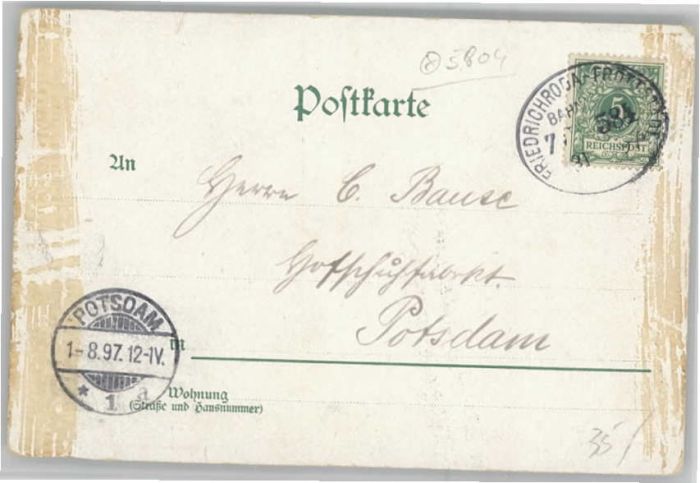 ⊗5804
Postkarte
FRIEDRICHRODA-FRÖTTSTÄDT
BAHN
584
7
REICHSPOST
An
Herrn C. Bause
Hofschuhfabrkt.
Potsdam
POTSDAM
1-8.97.12-1V.
* 1 a
in
Wohnung
(Straße und Hausnummer)
35